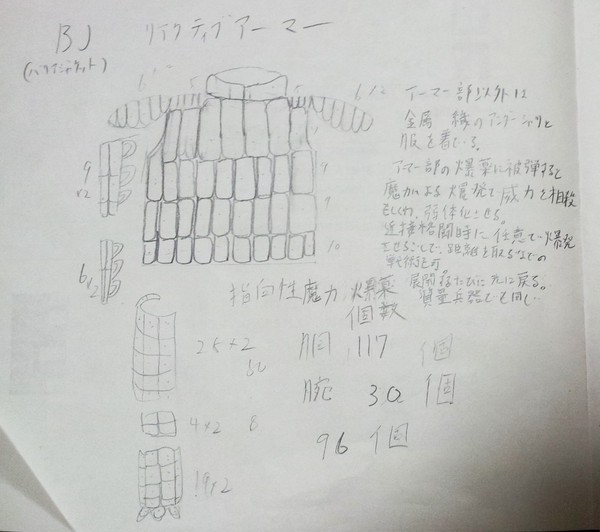 BJ リアクティブアーマー
(バリアジャケット)
6 5 5 6 12
アーマー部以外は
金属 繊のアンダーシャツと
服を着ている。
アーマー部の爆薬に被弾すると
魔力による爆発で威力を相殺
もしくは、弱体化させる。
近接格闘時に任意で爆発
させることで、距離を取るなどの
戦術も可。
展開するたびに元に戻る。
質量兵器でも同じ
9
×2
9
9
10
6×2
指向性魔力爆薬
個数
25×2
50
胴 117 個
4×2 8
腕 30 個
96 個
19×2